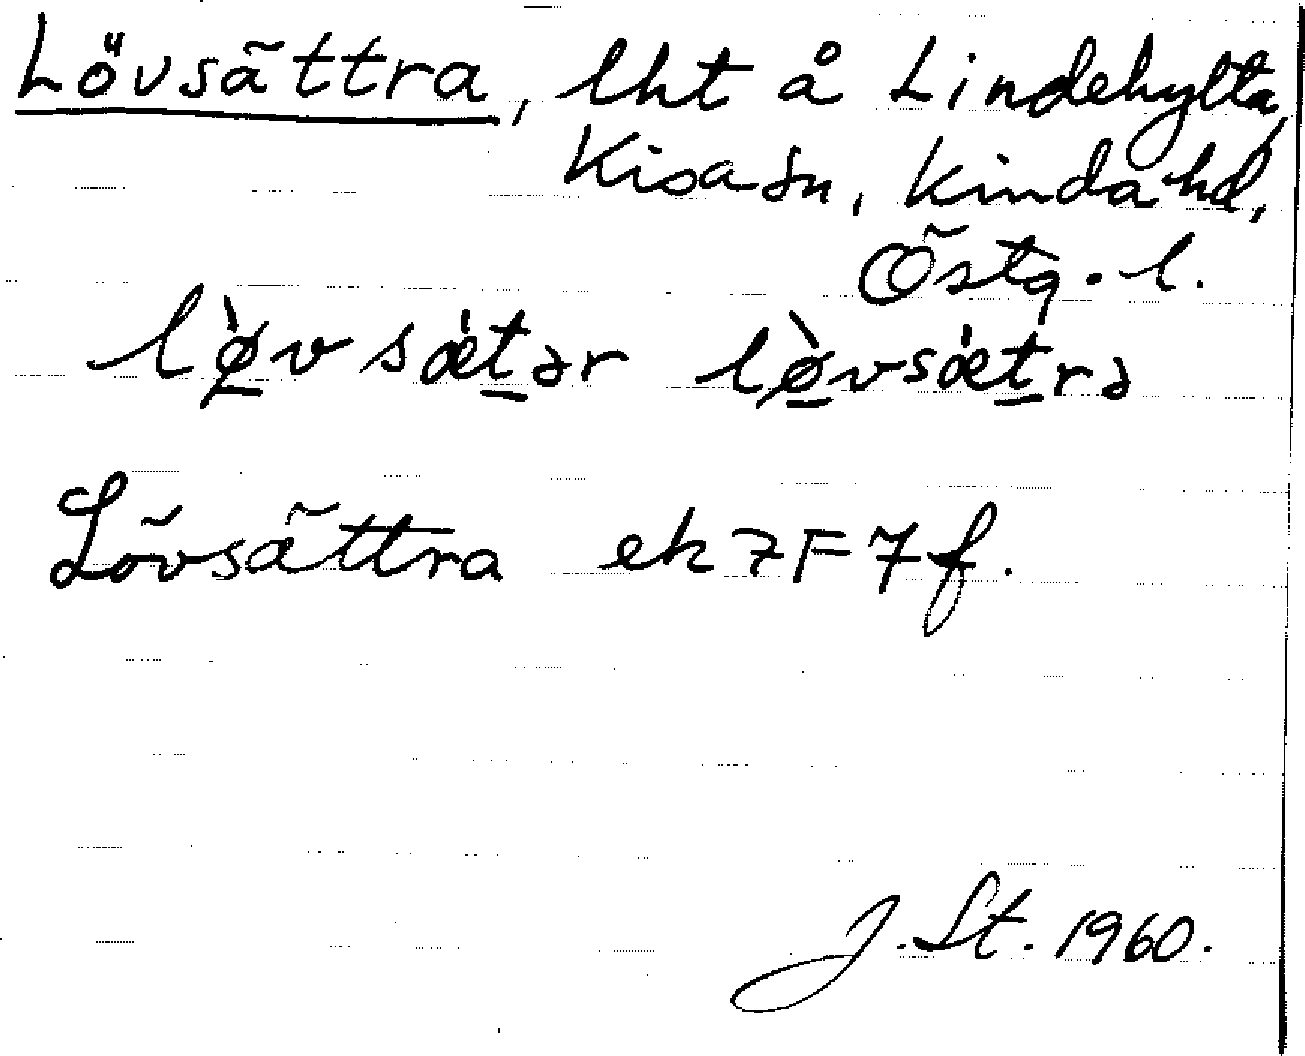 Lövsättra, lht å Lindehytta,
Kisa sn, Kinda hd,
Östg. l.
lø̀vsǽtər lø̀vsǽtrə
Lövsättra ek 7F7f.
J. St. 1960.